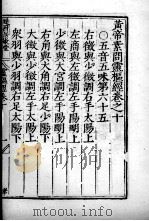 黃帝素問靈樞經卷之十
○五音五味第六十五
右徵與少徵調右手太陽上
左商與左徵調左手陽明上
少徵與大宮調左手陽明上
右角與大角調右足少陽下
大徵與少徵調左手太陽上
衆羽與少羽調右足太陽下